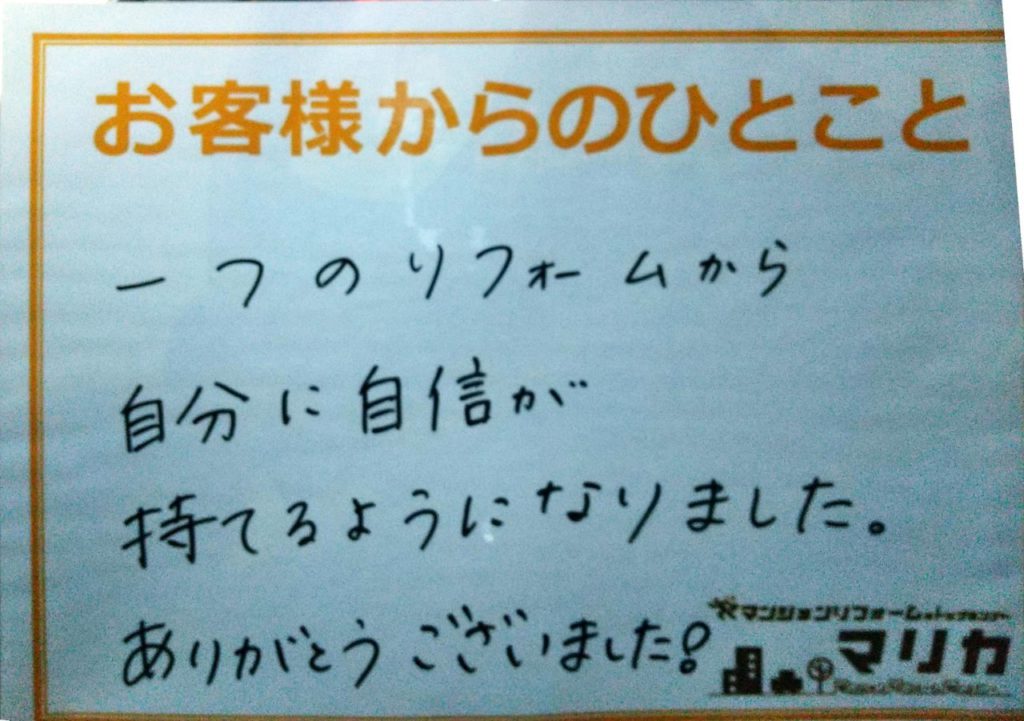 お客様からのひとこと
一つのリフォームから
自分に自信が
持てるようになりました。
ありがとうございました!
マンションリフォーム
マリカ